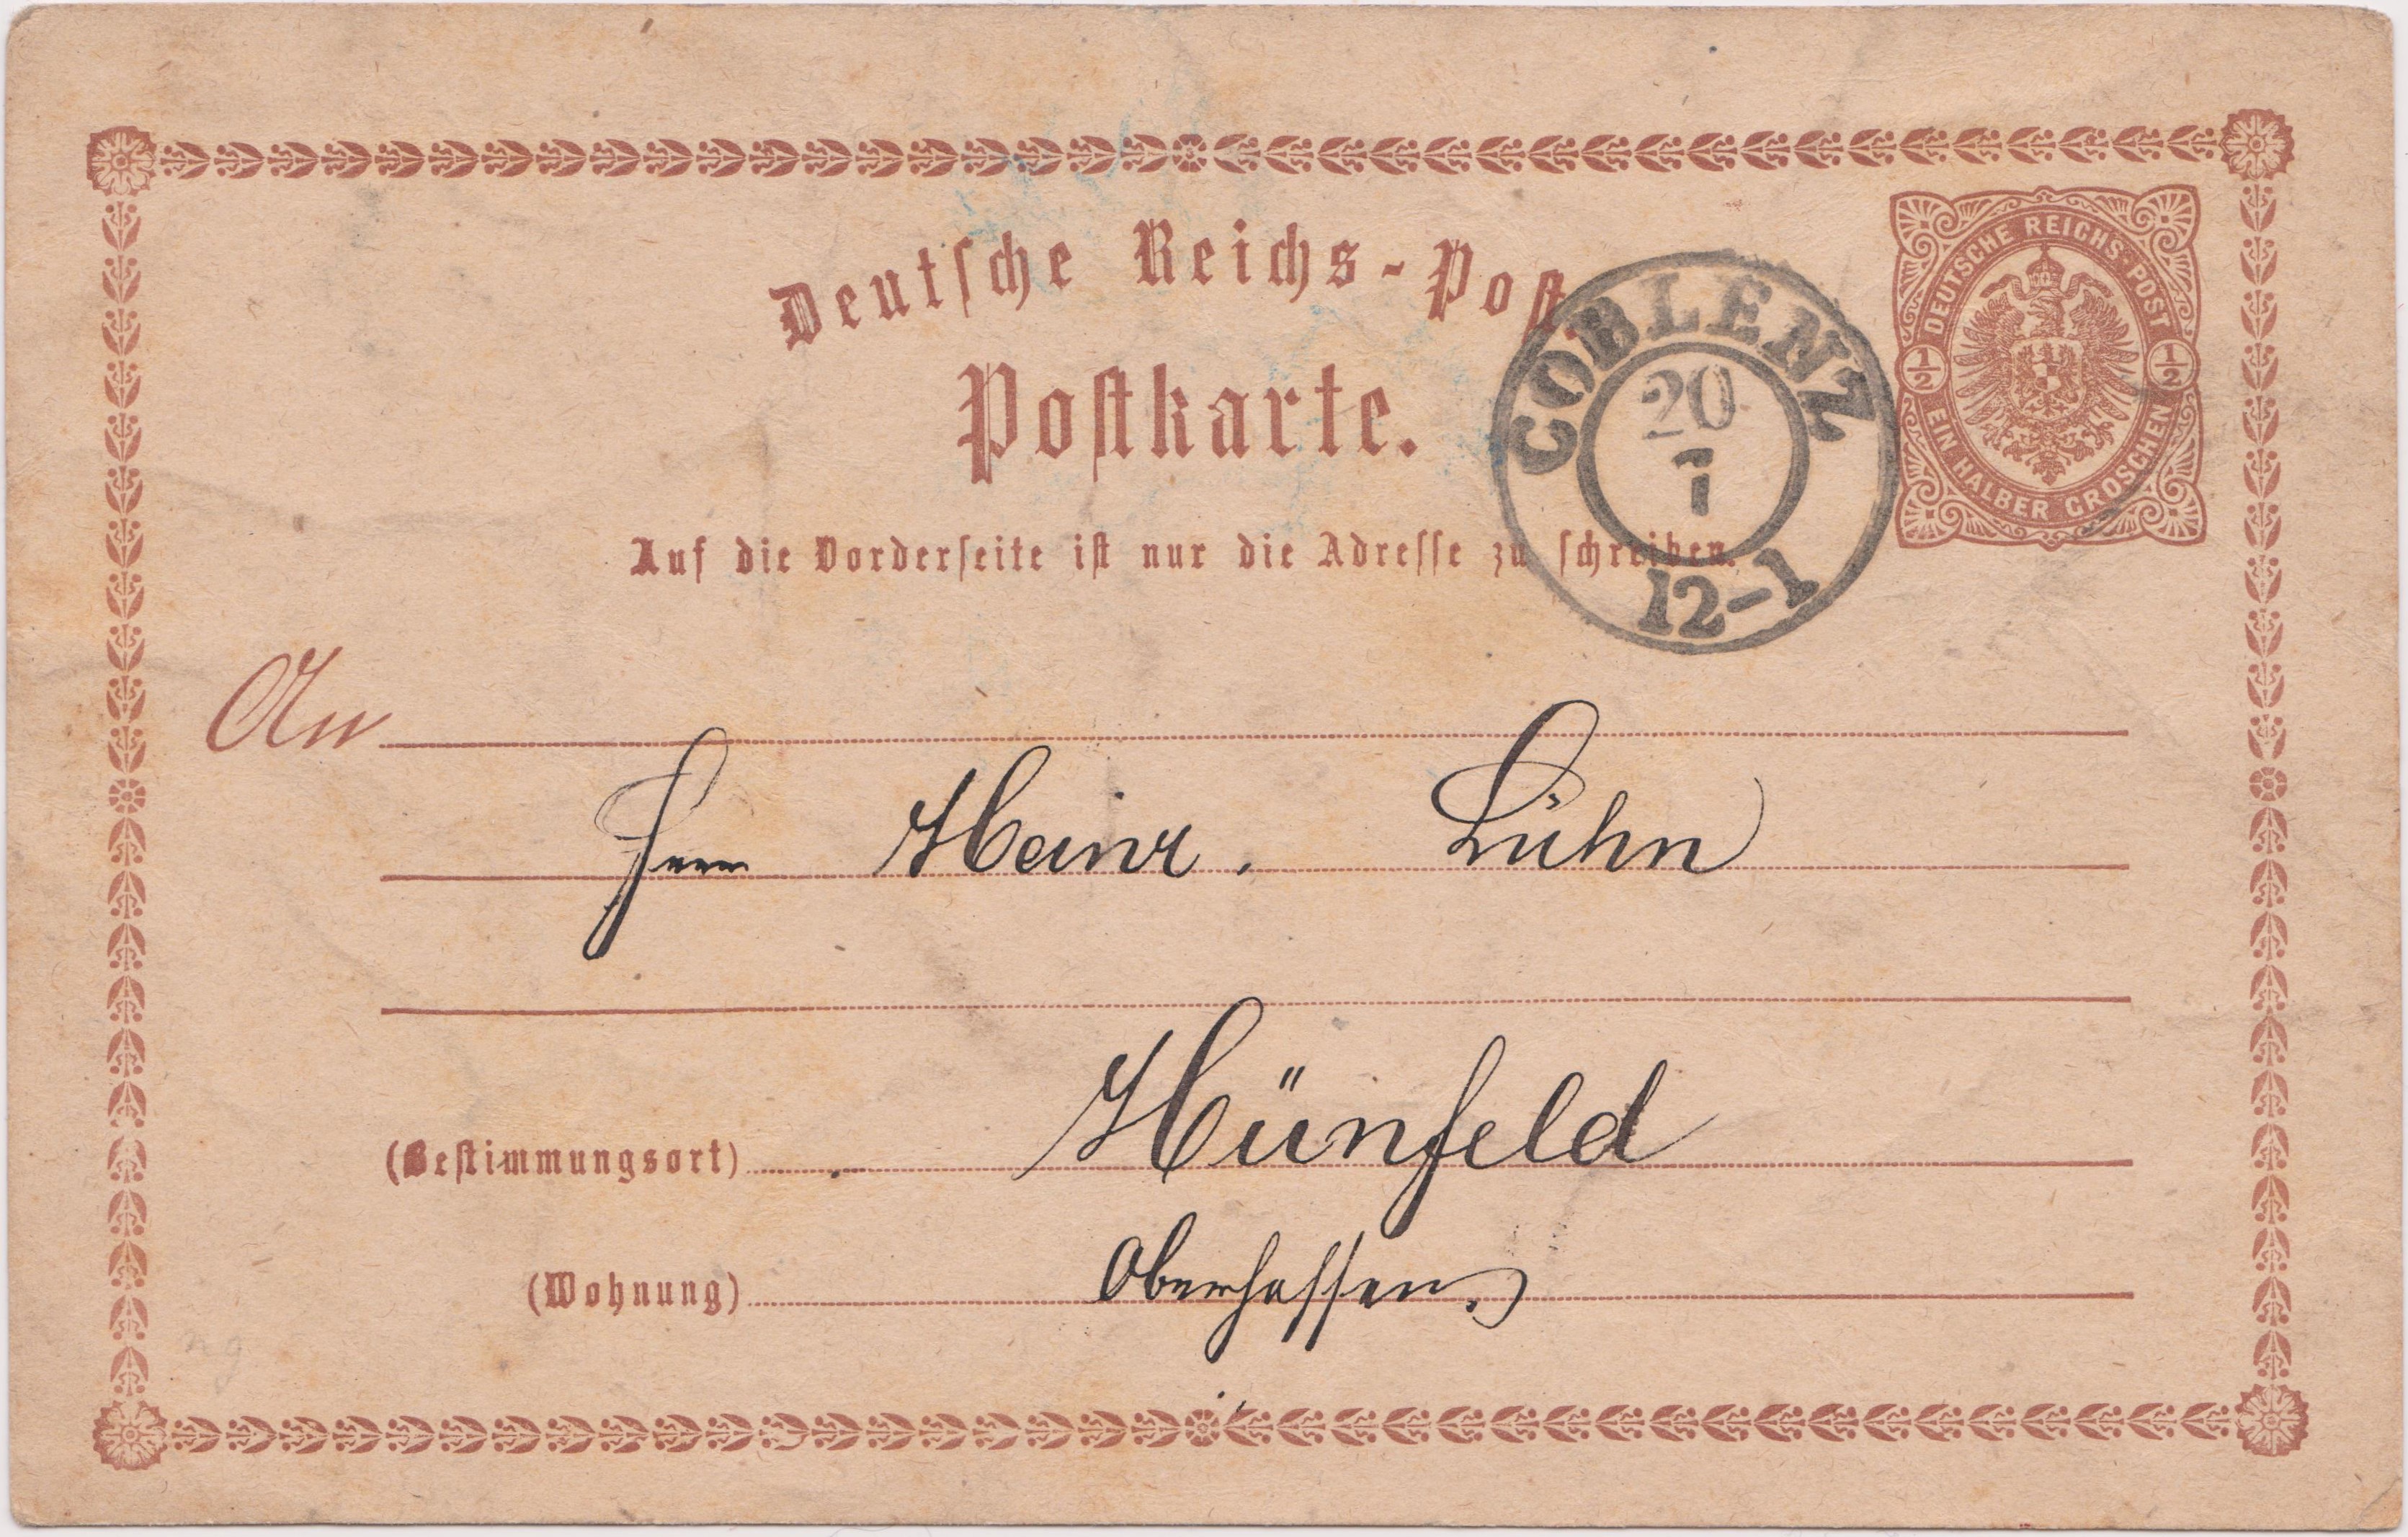 Deutsche Reichs-Post.
Postkarte.
Auf die Vorderseite ist nur die Adresse zu schreiben.
DEUTSCHE REICHS-POST
1/2 1/2
EIN HALBER GROSCHEN
COBLENZ
20
7
12-1
An
Herrn Heinr. Lühn
(Bestimmungsort) Hünfeld
(Wohnung) Oberhessen.